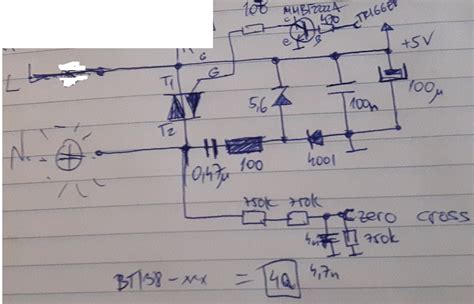 100
MMBT2222A
470
TRIGGER
c
e
B
+5V
L
G
T1
G
T2
5,6
100n
100µ
N
0,47µ
100
4001
750K
750K
zero cross
4n7
750k
4,7n
BT138-xxx = 4Q